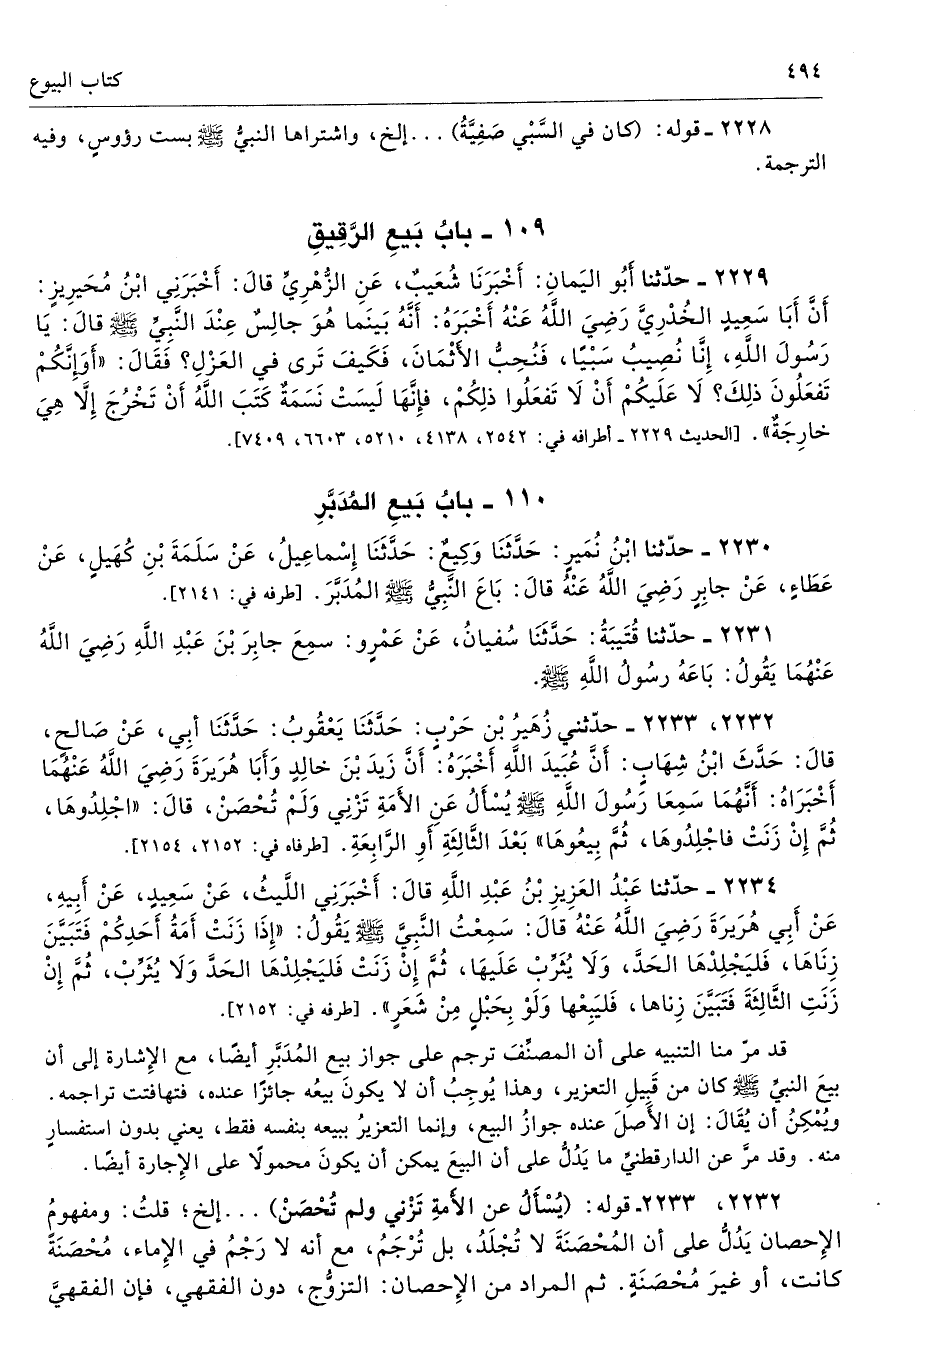 ٤٩٤
كتاب البيوع
٢٢٢٨ ـ قوله: (كان في السَّبْي صَفِيَّةُ) ...إلخ، واشتراها النبيُّ ﷺ بست رؤوسٍ، وفيه
الترجمة.
١٠٩ ـ بابُ بَيعِ الرَّقِيقِ
٢٢٢٩ ـ حدّثنا أَبُو اليَمانِ: أَخْبَرَنَا شُعَيبٌ، عَنِ الزُّهْرِيِّ قالَ: أَخْبَرَنِي ابْنُ مُحَيرِيزٍ:
أَنَّ أَبَا سَعِيدٍ الخُدْرِيَّ رَضِيَ اللَّهُ عَنْهُ أَخْبَرَهُ: أَنَّهُ بَينَما هُوَ جالِسٌ عِنْدَ النَّبِيِّ ﷺ قالَ: يَا
رَسُولَ اللَّهِ، إِنَّا نُصِيبُ سَبْيًا، فَنُحِبُّ الأَثْمَانَ، فَكَيفَ تَرى في العَزْلِ؟ فَقَالَ: «أَوَإِنَّكُمْ
تَفعَلُونَ ذلِكَ؟ لَا عَلَيكُمْ أَنْ لَا تَفعَلُوا ذلِكُمْ، فَإِنَّهَا لَيسَتْ نَسَمَةٌ كَتَبَ اللَّهُ أَنْ تَخْرُجَ إِلَّا هِيَ
خارِجَةٌ». [الحديث ٢٢٢٩ ـ أطرافه في: ٢٥٤٢، ٤١٣٨، ٥٢١٠، ٦٦٠٣، ٧٤٠٩].
١١٠ ـ بابُ بَيعِ المُدَبَّرِ
٢٢٣٠ ـ حدّثنا ابْنُ نُمَيرٍ: حَدَّثَنَا وَكِيعٌ: حَدَّثَنَا إِسْماعِيلُ، عَنْ سَلَمَةَ بْنِ كُهَيلٍ، عَنْ
عَطَاءٍ، عَنْ جابِرٍ رَضِيَ اللَّهُ عَنْهُ قالَ: بَاعَ النَّبِيُّ ﷺ المُدَبَّرَ. [طرفه في: ٢١٤١].
٢٢٣١ ـ حدّثنا قُتَيبَةُ: حَدَّثَنَا سُفيانُ، عَنْ عَمْرٍو: سمِعَ جابِرَ بْنَ عَبْدِ اللَّهِ رَضِيَ اللَّهُ
عَنْهُمَا يَقُولُ: بَاعَهُ رسُولُ اللَّهِ ﷺ.
٢٢٣٢، ٢٢٣٣ ـ حدّثني زُهَيرُ بْن حَرْبٍ: حَدَّثَنَا يَعْقُوبُ: حَدَّثَنَا أَبي، عَنْ صَالحٍ،
قالَ: حَدَّثَ ابْنُ شِهَابٍ: أَنَّ عُبَيدَ اللَّهِ أَخْبَرَهُ: أَنَّ زَيدَ بْنَ خالِدٍ وَأَبَا هُرَيرَةَ رَضِيَ اللَّهُ عَنْهُمَا
أَخْبَرَاهُ: أَنَّهُمَا سَمِعَا رَسُولَ اللَّهِ ﷺ يُسْأَلُ عَنِ الأَمَةِ تَزْنِي وَلَمْ تُحْصَنْ، قالَ: «اجْلِدُوهَا،
ثُمَّ إِنْ زَنَتْ فاجْلِدُوهَا، ثُمَّ بِيعُوهَا» بَعْدَ الثَّالِثَةِ أَوِ الرَّابِعَةِ. [طرفاه في: ٢١٥٢، ٢١٥٤].
٢٢٣٤ ـ حدّثنا عَبْدُ العَزِيزِ بْنُ عَبْدِ اللَّهِ قالَ: أَخْبَرَنِي اللَّيثُ، عَنْ سَعِيدٍ، عَنْ أَبِيهِ،
عَنْ أَبِي هُرَيرَةَ رَضِيَ اللَّهُ عَنْهُ قالَ: سَمِعْتُ النَّبِيَّ ﷺ يَقُولُ: «إِذَا زَنَتْ أَمَةُ أَحَدِكُمْ فَتَبَيَّنَ
زِنَاهَا، فَليَجْلِدْهَا الحَدَّ، وَلَا يُثَرِّبْ عَلَيهَا، ثُمَّ إِنْ زَنَتْ فَليَجْلِدْهَا الحَدَّ وَلَا يُثَرِّبْ، ثُمَّ إِنْ
زَنَتِ الثَّالِثَةَ فَتَبَيَّنَ زِناها، فَليَبِعْها وَلَوْ بِحَبْلٍ مِنْ شَعَرٍ». [طرفه في: ٢١٥٢].
قد مرّ منا التنبيه على أن المصنِّفَ ترجم على جواز بيع المُدَبَّرِ أيضًا، مع الإِشارة إلى أن
بيعَ النبيِّ ﷺ كان من قَبِيلِ التعزير، وهذا يُوجِبُ أن لا يكونَ بيعُه جائزًا عنده، فتهافتت تراجمه.
ويُمْكِنُ أن يُقَالَ: إن الأَصلَ عنده جوازُ البيع، وإنما التعزيرُ ببيعه بنفسه فقط، يعني بدون استفسارٍ
منه. وقد مرَّ عن الدارقطنيِّ ما يَدُلُّ على أن البيعَ يمكن أن يكونَ محمولًا على الإِجارة أيضًا.
٢٢٣٢، ٢٢٣٣ـ قوله: (يُسْأَلُ عن الأَمةِ تَزْني ولم تُحْصَنْ) ...إلخ؛ قلتُ: ومفهومُ
الإِحصان يَدُلُّ على أن المُحْصَنَةَ لا تُجْلَدُ، بل تُرْجَمُ، مع أنه لا رَجْمُ في الإِماء، مُحْصَنَةً
كانت، أو غيرَ مُحْصَنَةٍ. ثم المراد من الإِحصان: التزوُّج، دون الفقهي، فإن الفقهيَّ